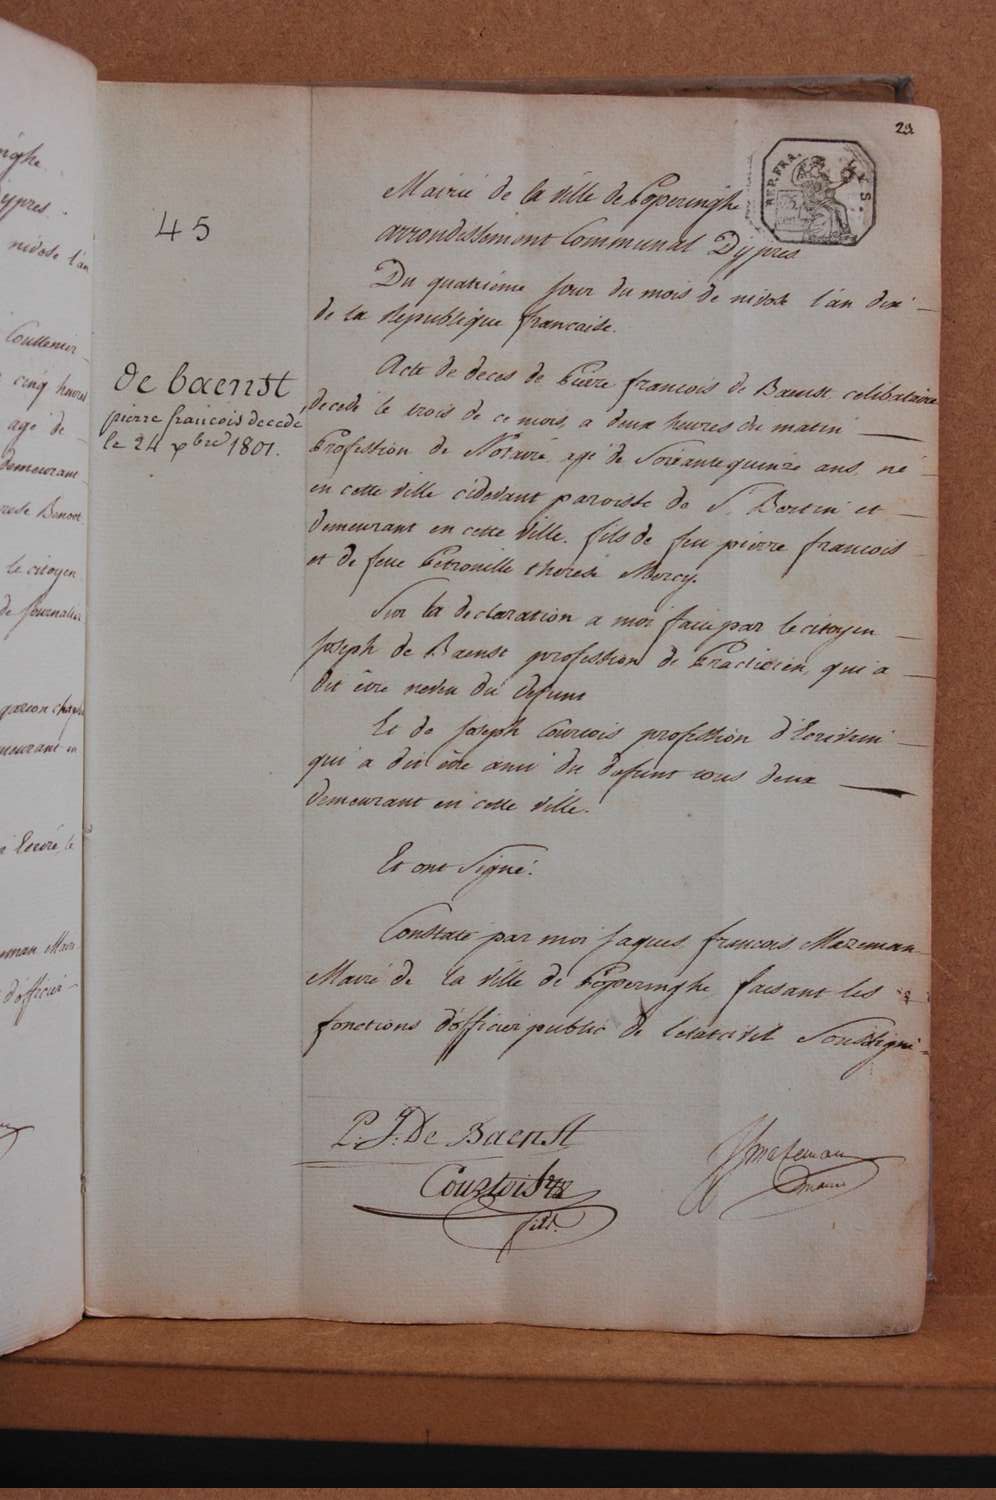 29
REP. FRA.
LYS.
45
Mairie de la ville de Poperinghe
arrondissement Communal Dypres
Du quatrième jour du mois de nivose l'an dix
de la République francaise.
de baenst
pierre francois decede
le 24 xbre 1801.
Acte de deces de Pierre francois de Baenst celibataire
decedé le trois de ce mois, a deux heures du matin
Profession de Notaire, agé de Soixante quinze ans, né
en cette ville cidevant paroisse de St. Bertin et
demeurant en cette ville. fils de feu pierre francois
et de feue Petronille therese Mercy.
Sur la declaration a moi faite par le citoyen
Joseph de Baenst profession de Practicien, qui a
dit être neveu du defunt
Et de Joseph Courtois profession d'Ecrivain
qui a dit être ami du defunt tous deux
demeurant en cette ville.
Et ont Signé.
Constaté par moi Jaques francois Mazeman
Maire de la ville de Poperinghe faisant les
fonctions d'officier public de l'etat civil Soussigné
P. J. De Baenst
Courtois
maire
inghe
ypres.
nivose l'an
cinq heures
agé de
demeurant
le citoyen
de Journalier
demeurant en
d'officier